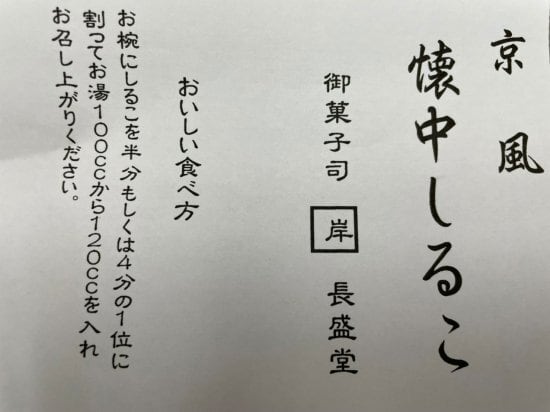 京風
懐中しるこ
御菓子司 岸 長盛堂
おいしい食べ方
お椀にしるこを半分もしくは4分の1位に
割ってお湯100ccから120ccを入れ
お召し上がりください。